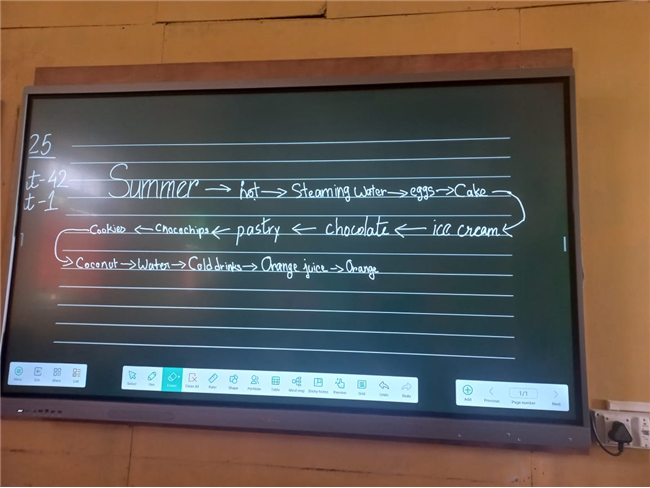 25
t-42
t-1
Summer → hot → Steaming Water → eggs → Cake
Cookies ← Chocochips ← pastry ← chocolate ← ice cream
→ Coconut → Water → Cold drinks → Orange juice → Orange
Menu
Exit
Share
Select
Pen
Eraser
Clear All
Ruler
Shape
Table
Mind map
Sticky Notes
Undo
Redo
Add
Previous
1/1
Page number
Next